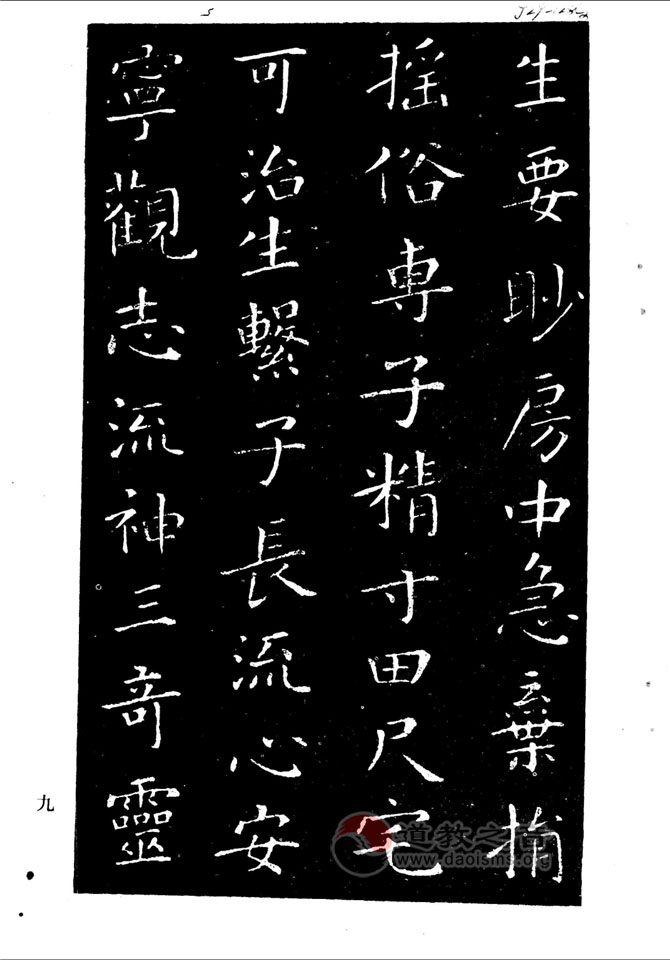 生要眇房中急棄捐
搖俗專子精寸田尺宅
可治生繫子長流心安
寧觀志流神三奇靈
九
道教之音
www.daoisms.org